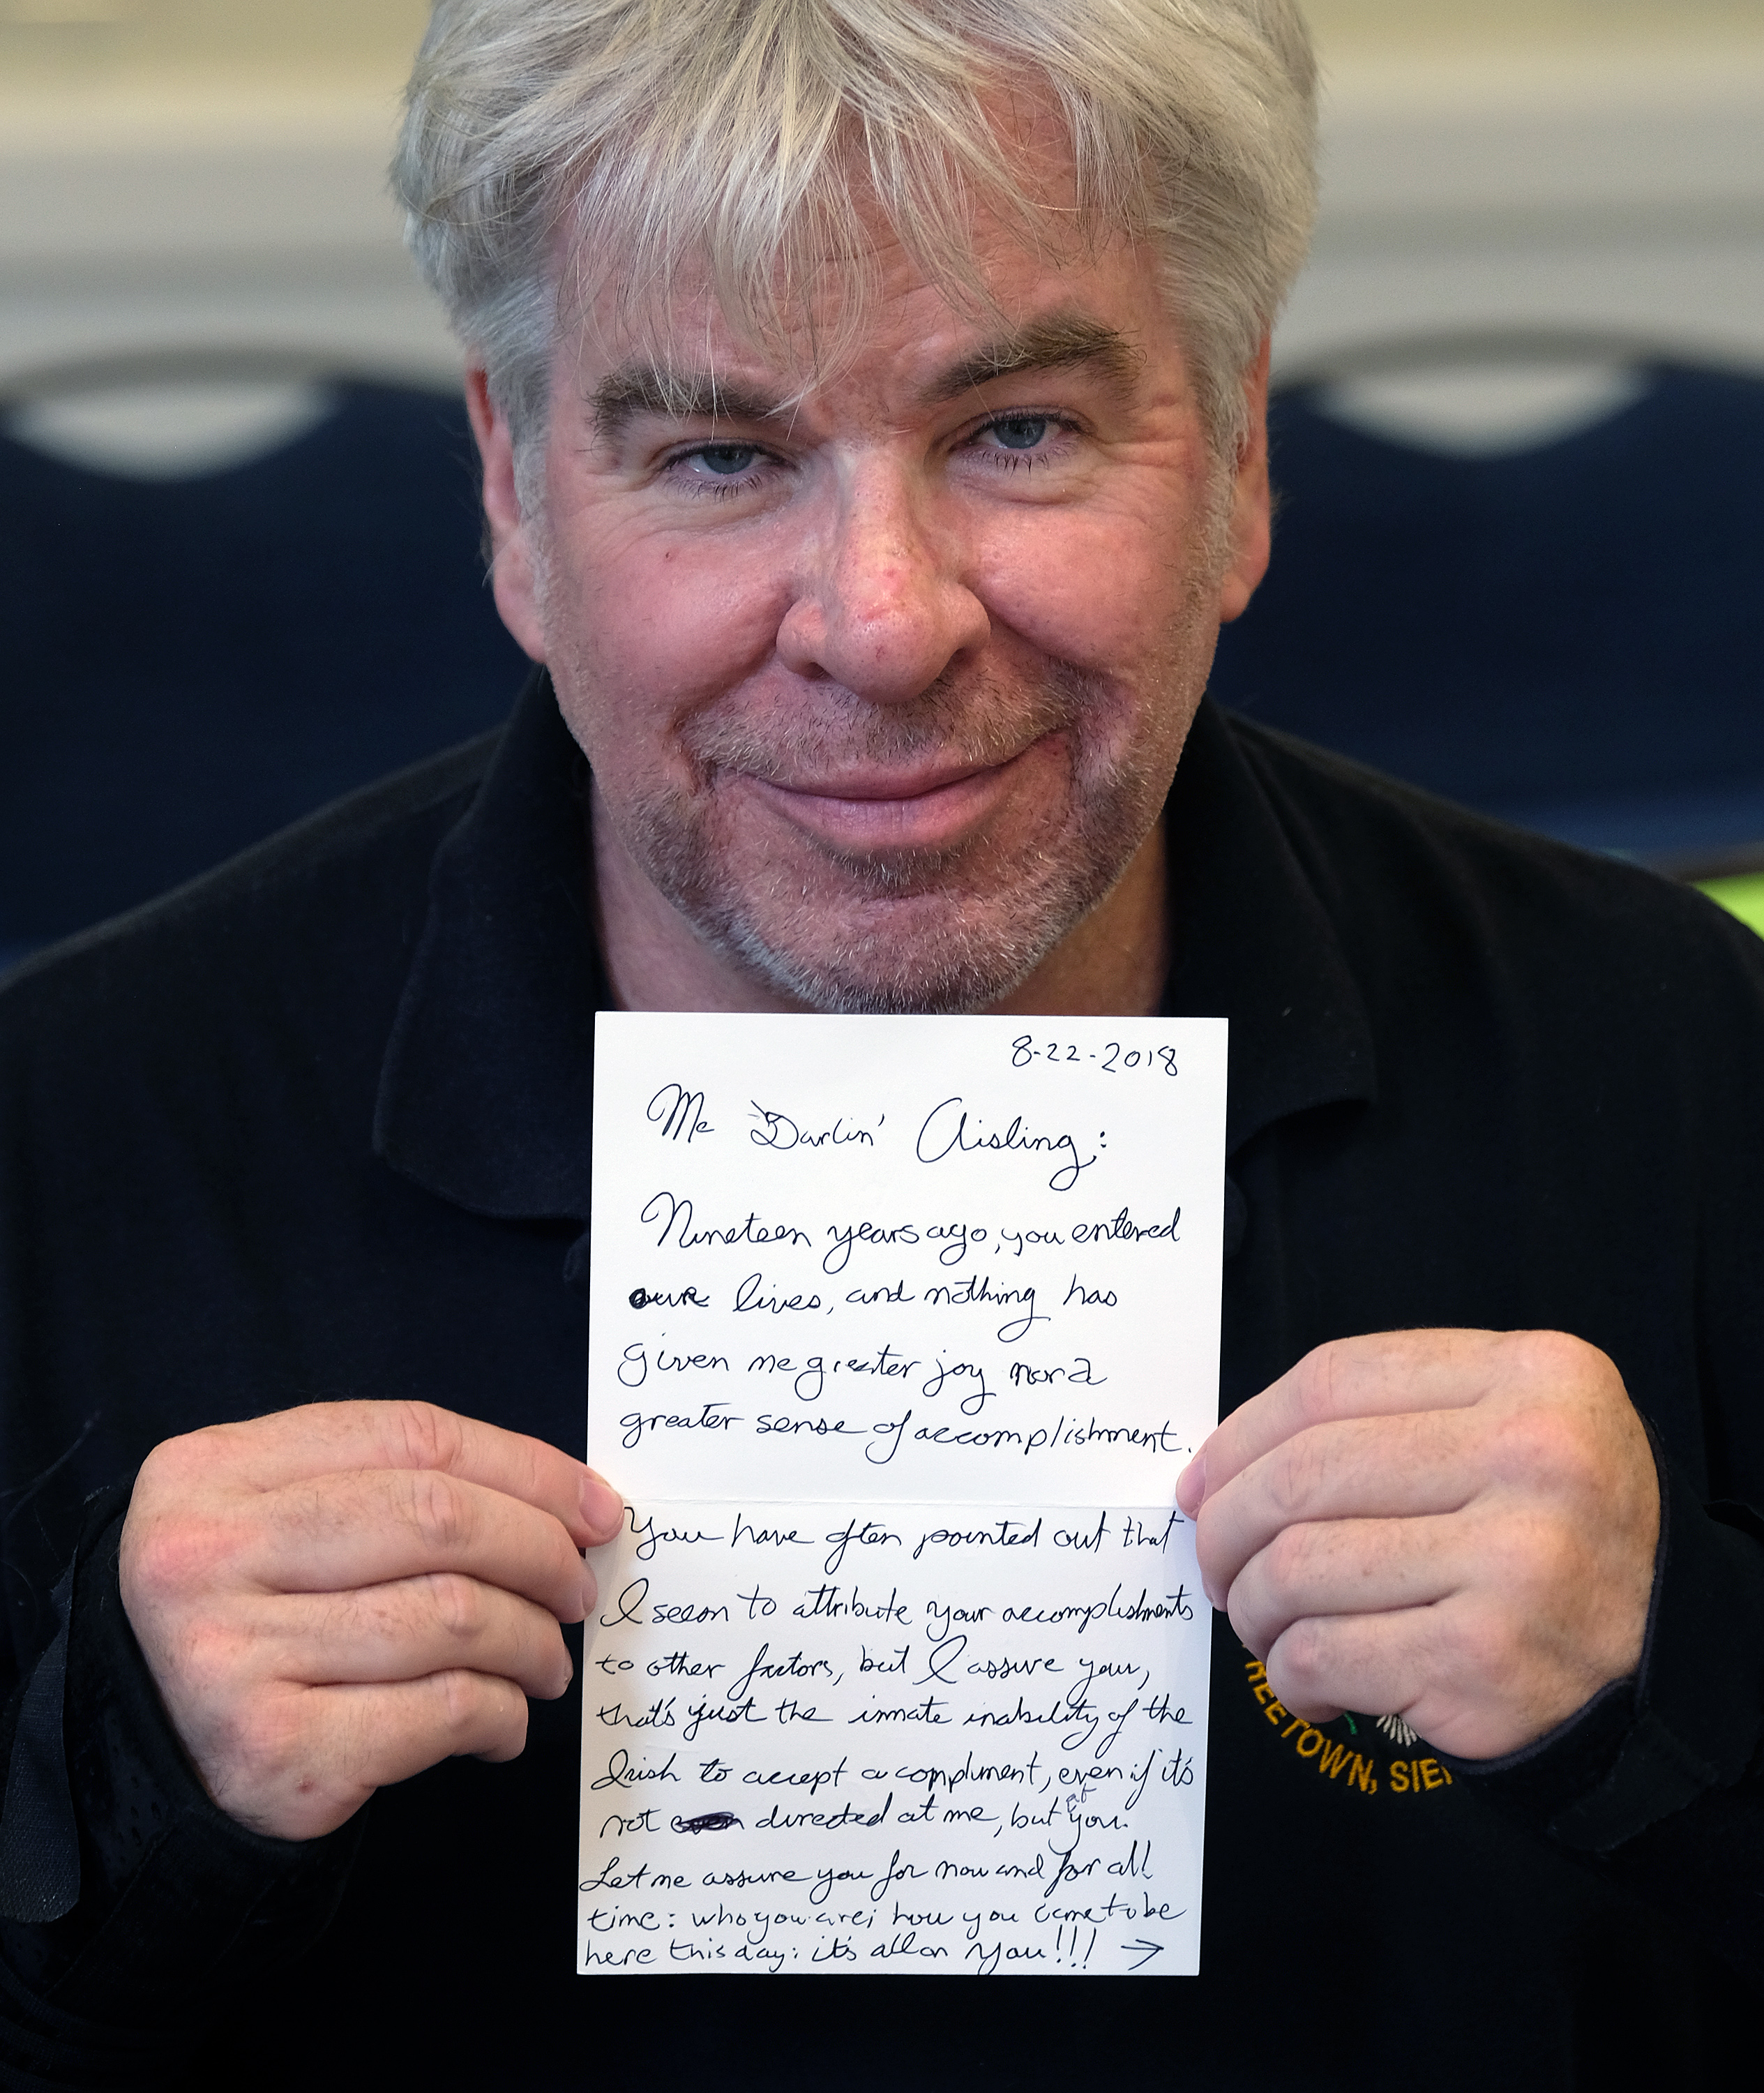 8-22-2018
Me Darlin' Aisling:
Nineteen years ago, you entered
our lives, and nothing has
given me greater joy nor a
greater sense of accomplishment.
You have often pointed out that
I seem to attribute your accomplishments
to other factors, but I assure you,
that's just the innate inability of the
Irish to accept a compliment, even if it's
not directed at me, but at you.
Let me assure you for now and for all
time: who you are; how you came to be
here this day: it's all on you!!! →
REETOWN, SIE